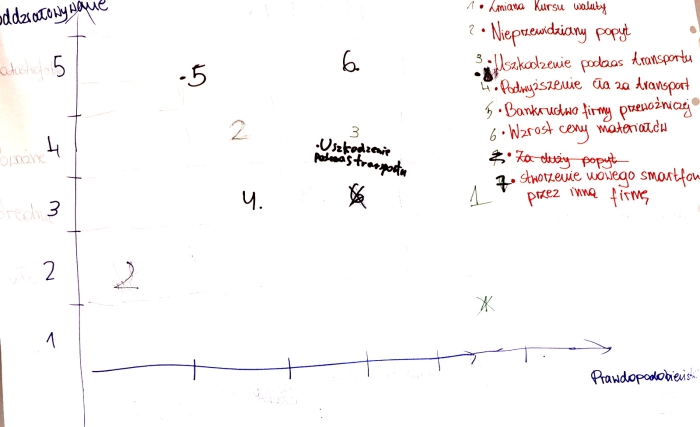 oddziaływanie
1 • Zmiana Kursu waluty
2 • Nieprzewidziany popyt
3 • Uszkodzenie podczas transportu
4 • Podwyższenie cła za transport
5 • Bankructwo firmy przewoźniczej
6 • Wzrost ceny materiałów
Za duży popyt
7 • stworzenie nowego smartfon
przez inną firmę
5
•5
6.
4
2
3
•Uszkodzenie
podczas transportu
3
4.
1
2
2
1
Prawdopodobieńs